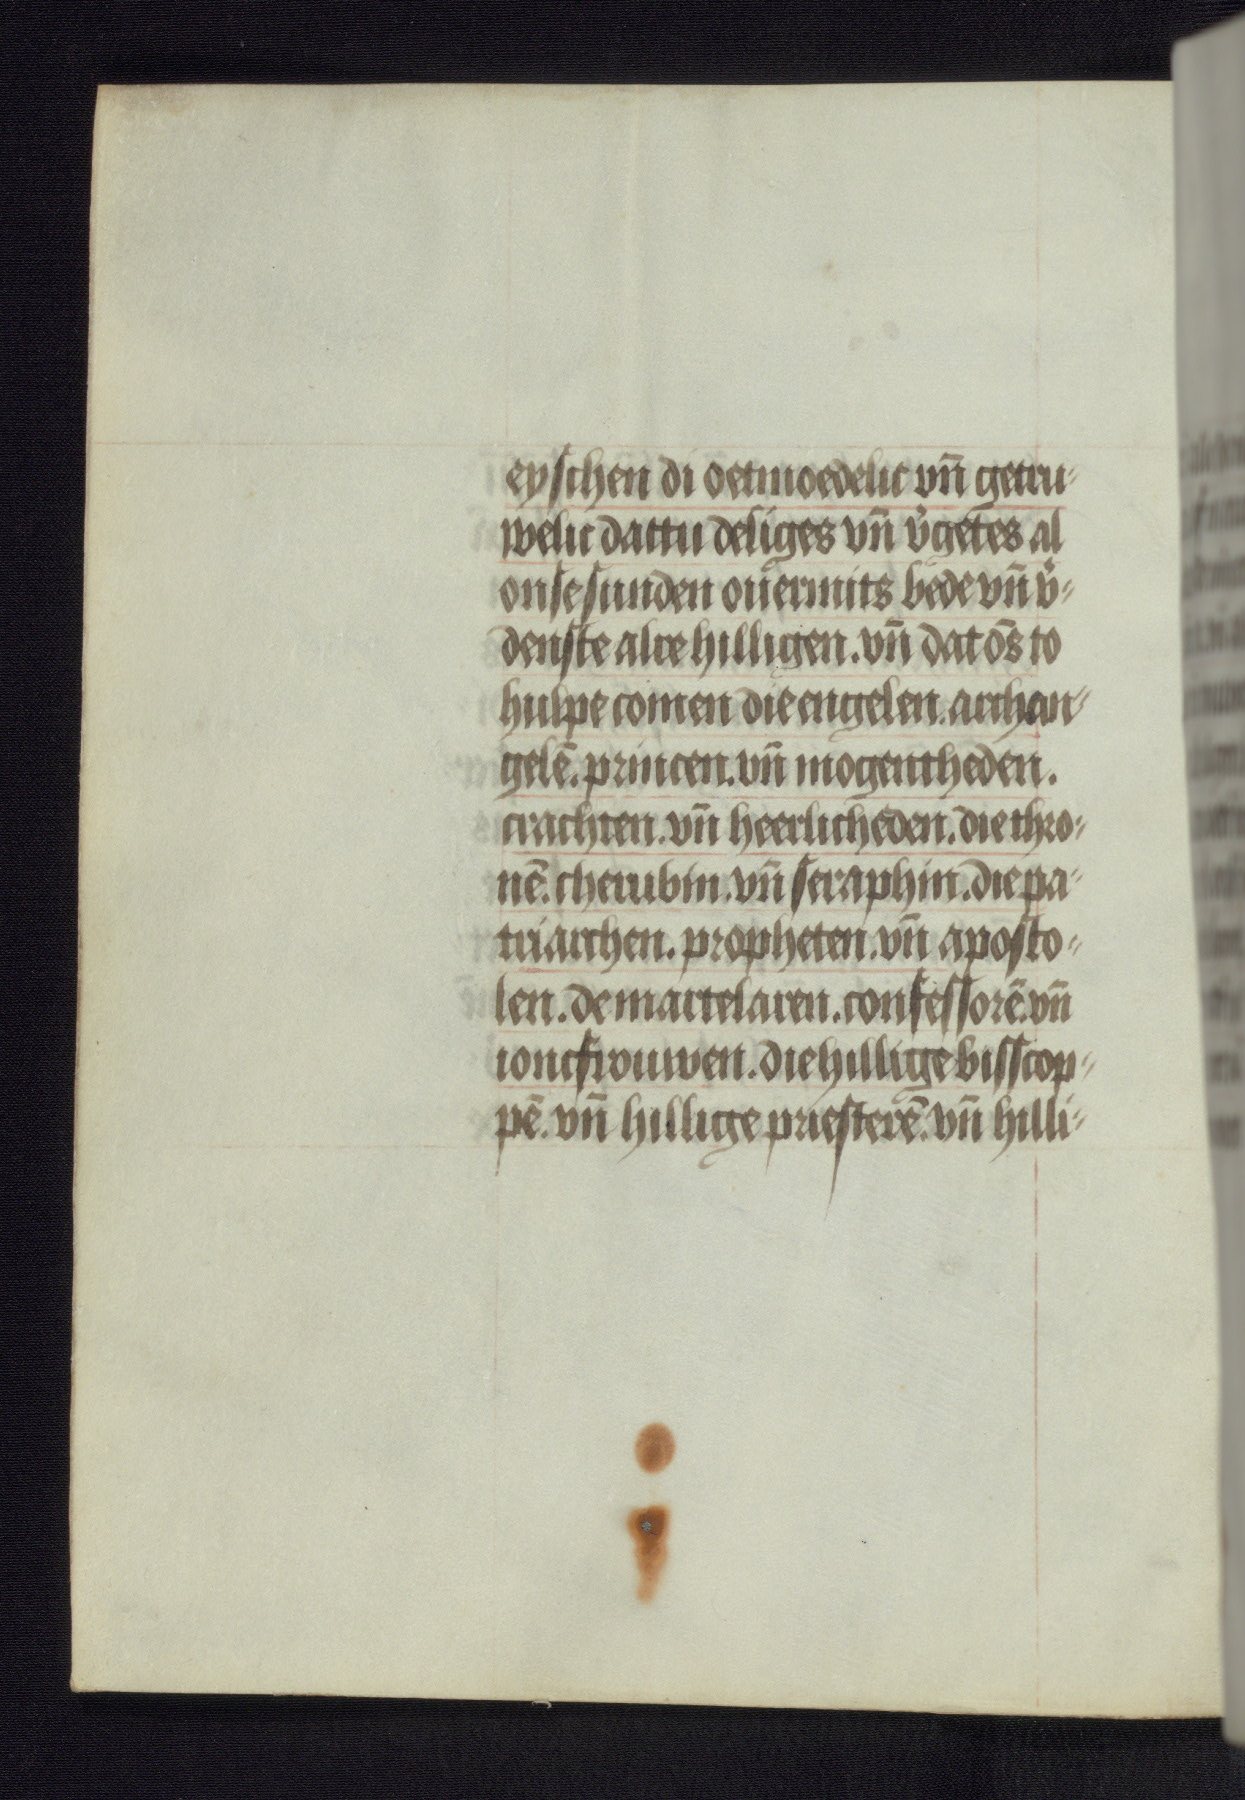 eyschen di oetmoedelic vn̄ getru-
welic dattu deliges vn̄ v̓getes al
onse sunden ouermits bede vn̄ v̓-
denste alre hilligen. vn̄ dat ōs to
hulpe comen die engelen. archan-
gelē. princen. vn̄ mogentheden.
crachten. vn̄ heerlicheden. die thro-
nē. cherubin. vn̄ seraphin. die pa-
triarchen. propheten. vn̄ aposto-
len. de martelaren. confessorē. vn̄
ioncfrouwen. die hillige bisscop-
pē. vn̄ hillige priesterē. vn̄ hilli-